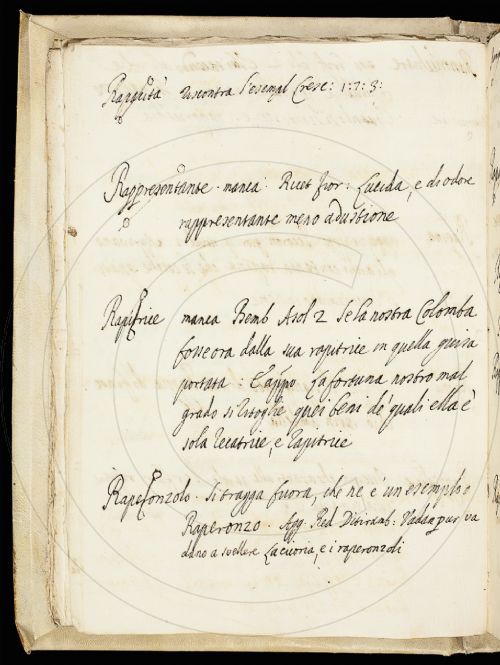 Rapacità riscontra l'esempl Cresc: 1:7:3:
Rappresentante. manca. Ricet fior: Lucida, e di odore
rappresentante meno adustione
Rapitrice manca Bemb Asol 2 Se la nostra Colomba
fosse ora dalla sua rapitrice in quella guisa
portata: La fortuna nostro mal
grado si ritoglie quei beni de' quali ella è
sola recatrice, e rapitrice
Raperonzolo. si tragga fuora, che ne è un esemplo
Raperonzo. Agg. Red Ditiramb: Vadan pur, va
dano a svellere La cicoria, e i raperonzoli